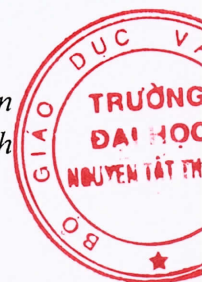 n
h
BỘ GIÁO DỤC V
TRƯỜNG
ĐẠI HỌC
NGUYỄN TẤT TH